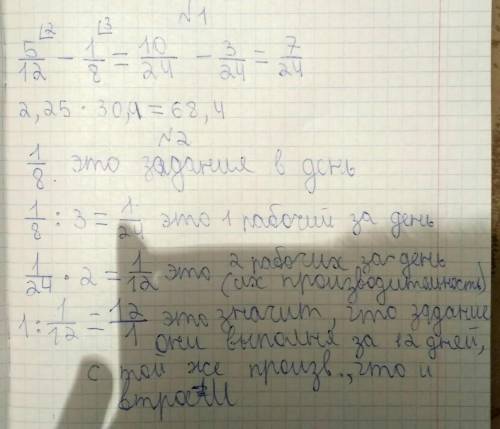 №1
5/12 - 1/8 = 10/24 - 3/24 = 7/24
⌊2 ⌊3
2,25 · 30,4 = 68,4
№2
1/8. это задания в день
1/8 : 3 = 1/24 это 1 рабочий за день
1/24 · 2 = 1/12 это 2 рабочих за день (их производительность)
1 : 1/12 = 12/1 это значит, что задание
они выполня за 12 дней,
с той же произв., что и
втроем